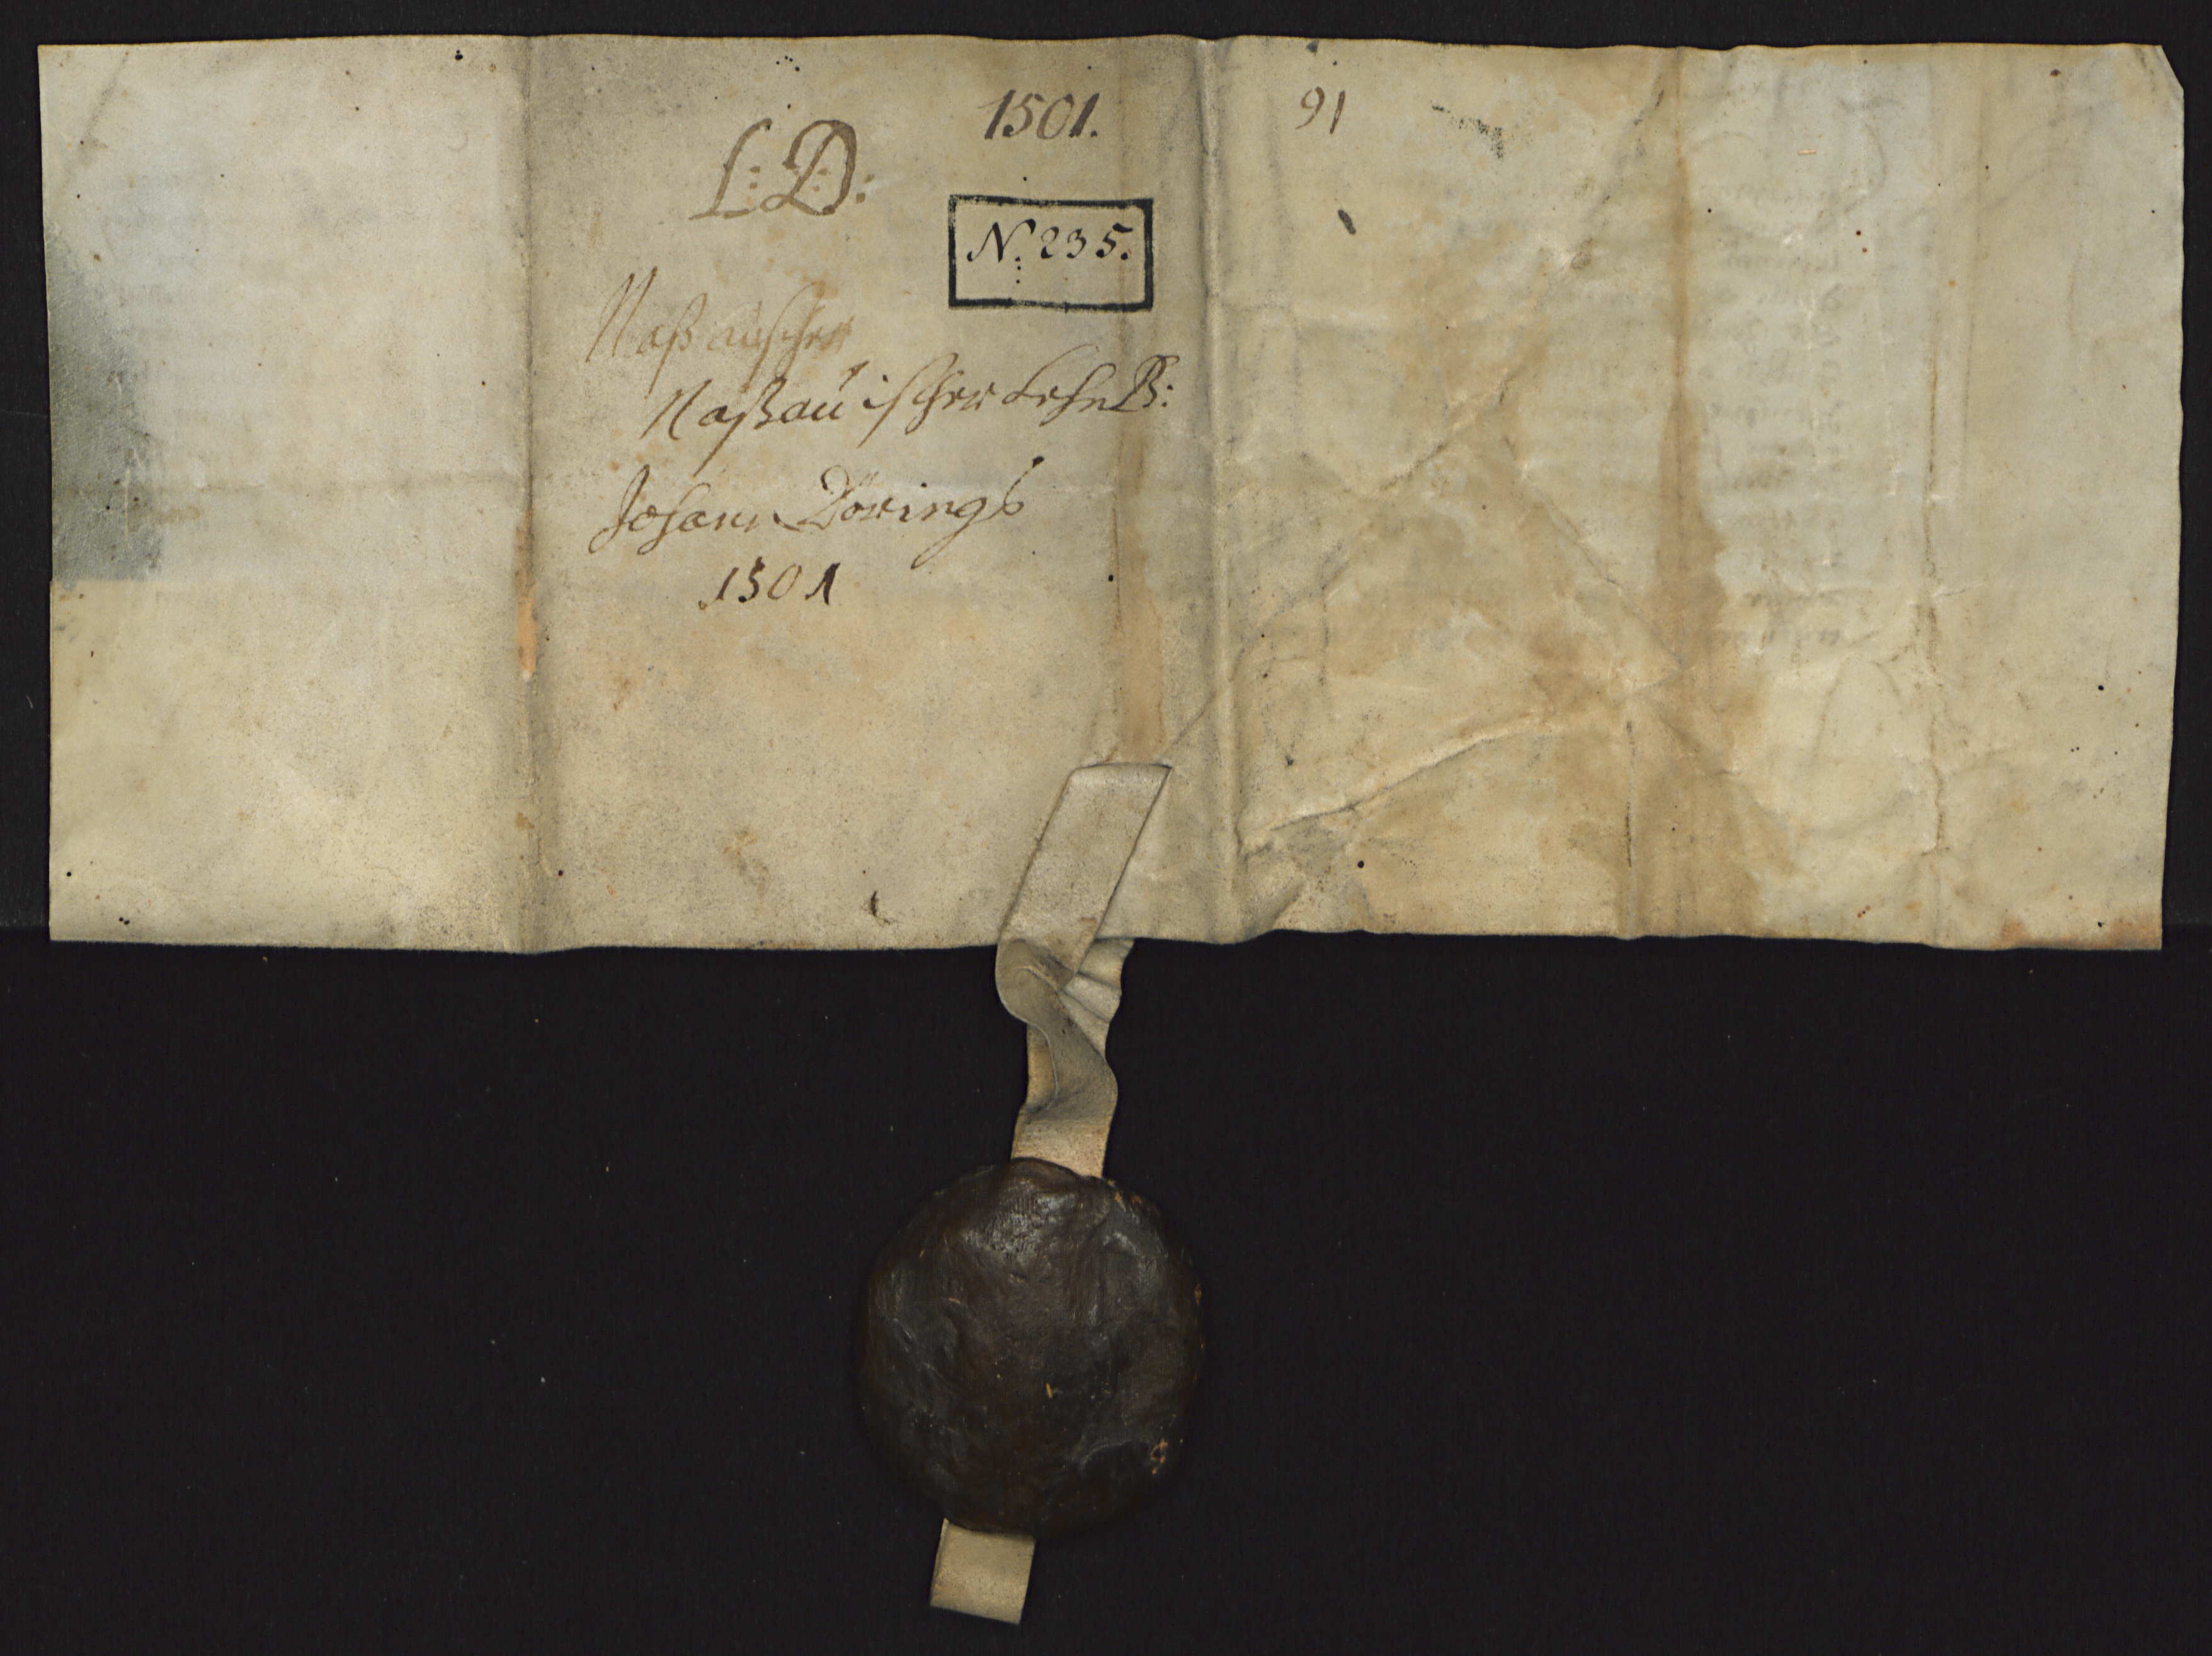 1501.
91
L: D:
N. 235.
Naßauischer
Naßauischer LehnB:
Johann Dörings
1501